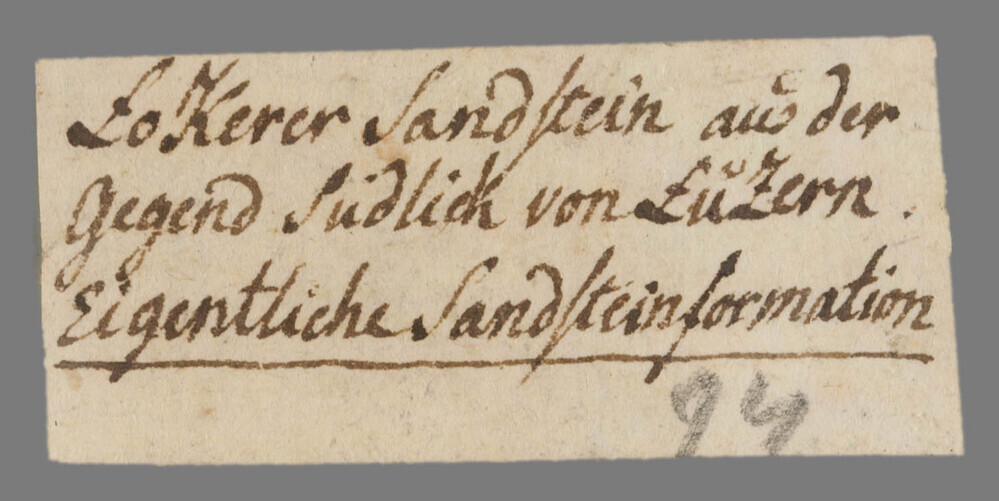 Lokerer Sandstein aus der
Gegend Südlich von Luzern.
Eigentliche Sandsteinformation
94